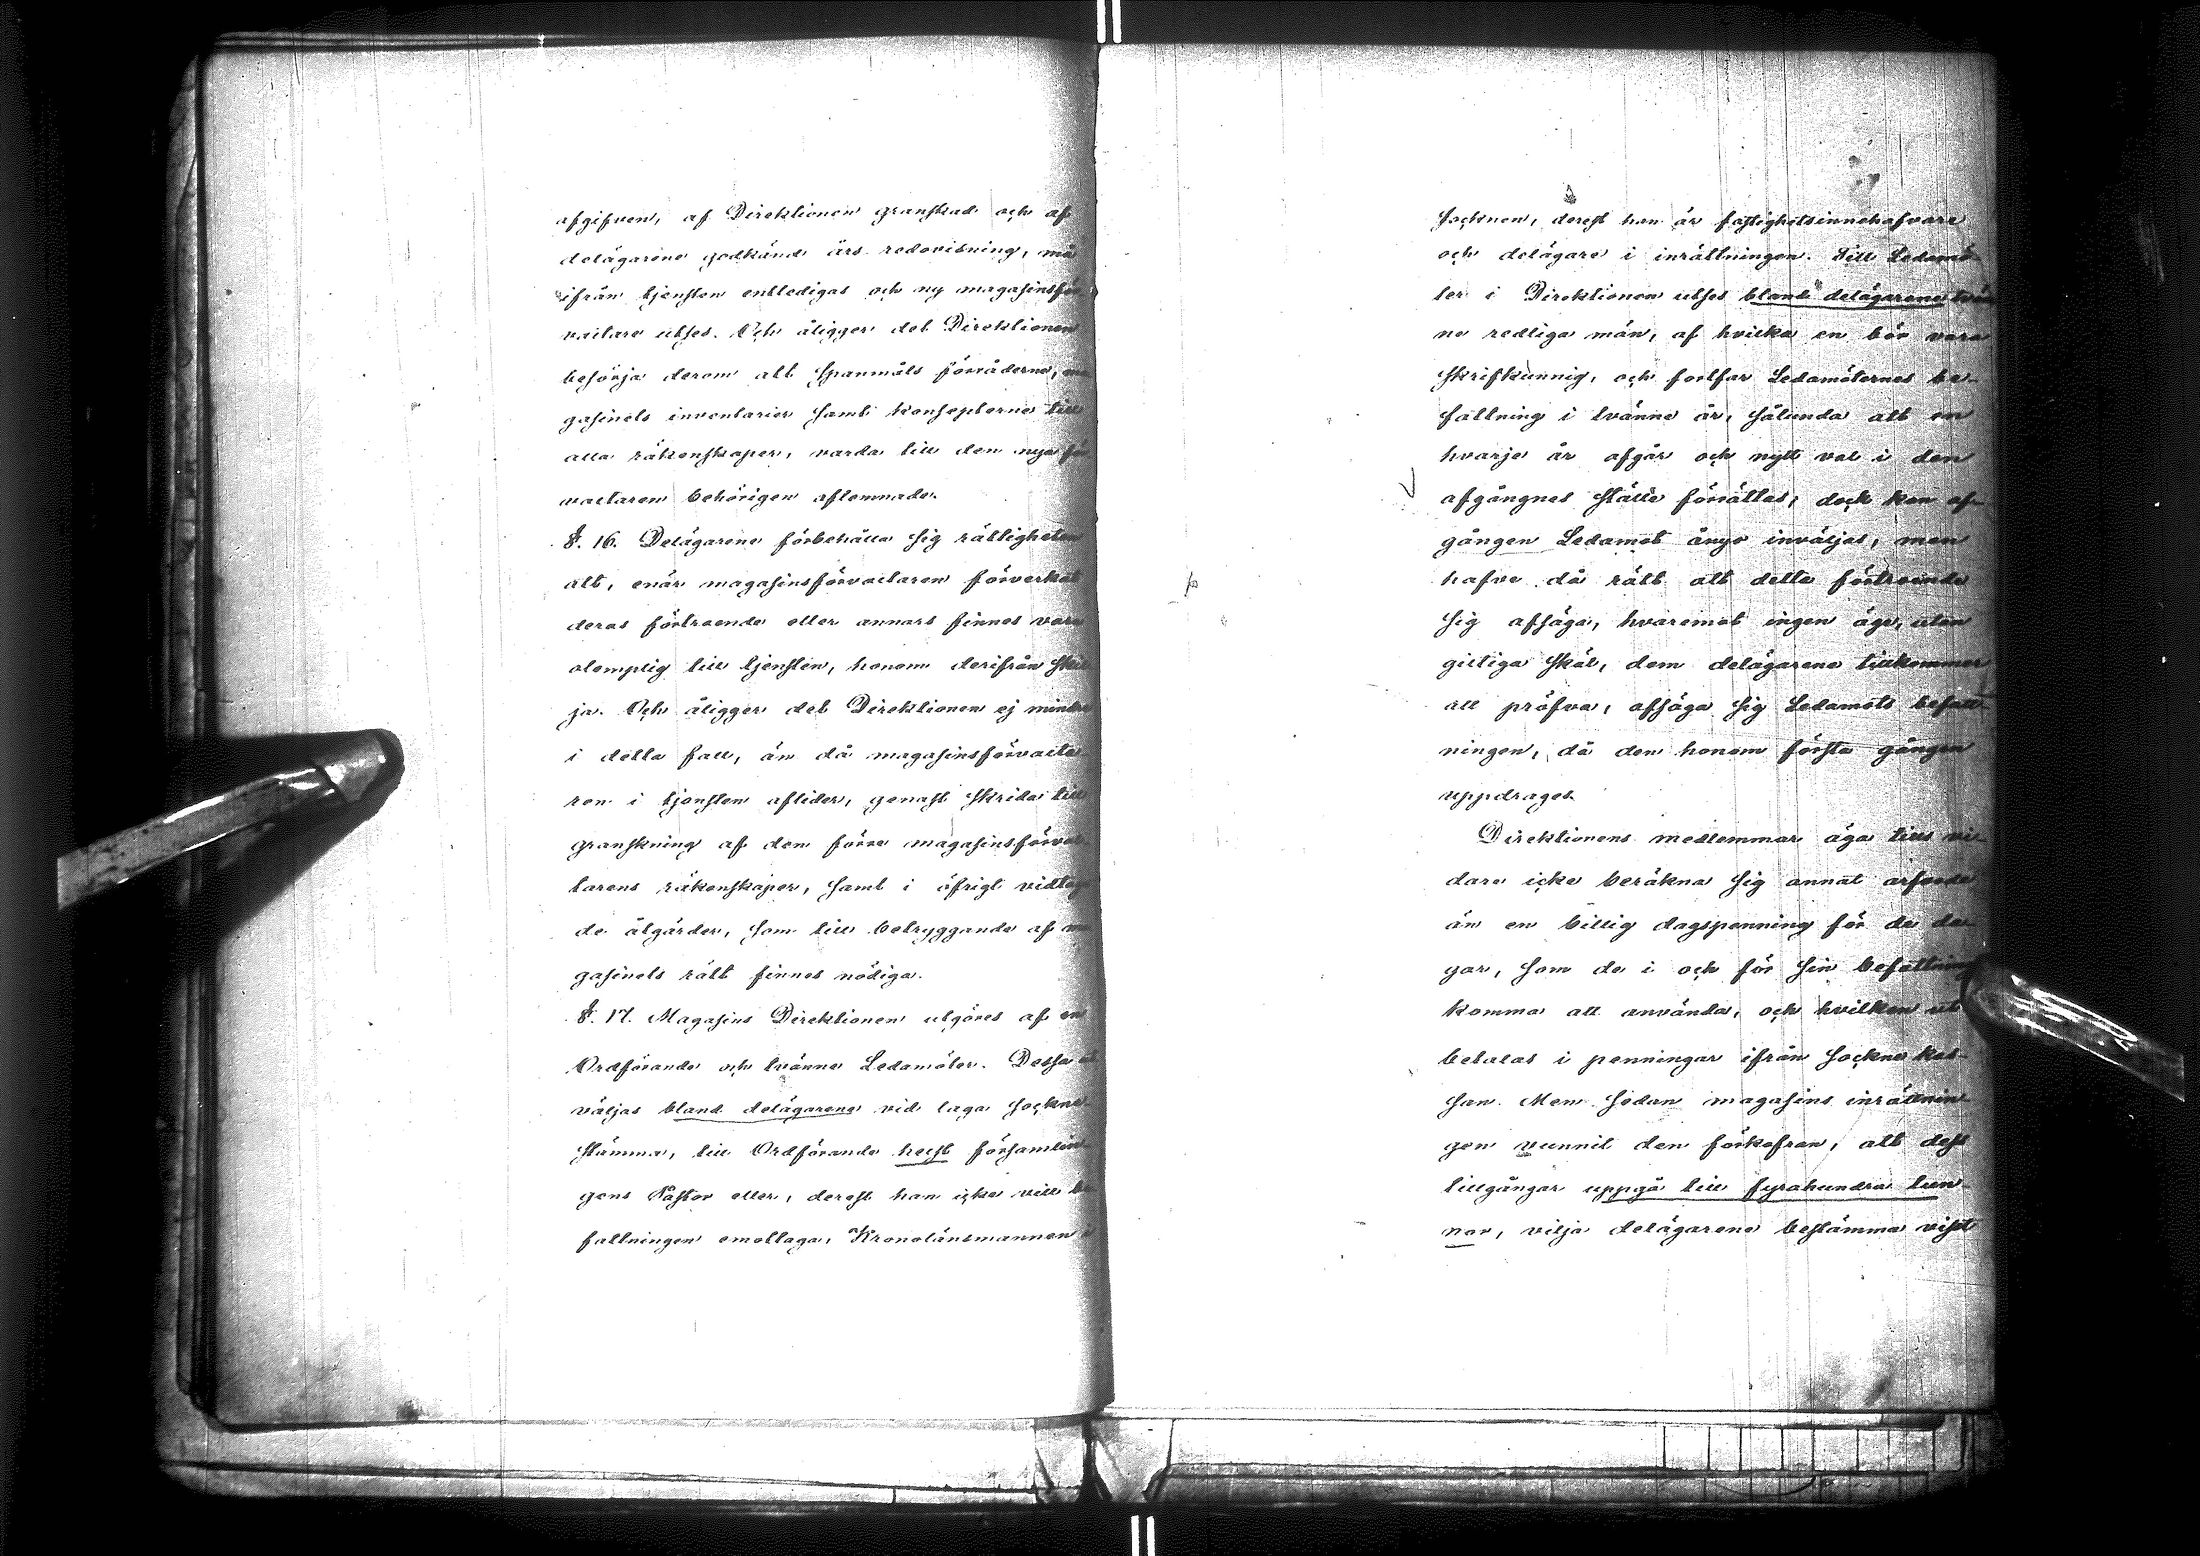 afgifven, af Direktionen granskad och af
delägarene godkänd års redovisning, må
ifrån tjensten entledigas och ny magasinsför
valtare utses. Och åligger det Direktionen
besörja derom att spannmåls förråderne, ma
gasinets inventarier samt koncepterne till
alla räkenskaper, varda till den nya för
valtaren behörigen aflemnade.
§. 16. Delägarene förbehålla sig rättigheten
att, enär magasinsförvaltaren förverkat
deras förtroende eller annars finnes vara
olemplig till tjensten, honom derifrån skil
ja. Och åligger det Direktionen ej mindre
i detta fall, än då magasinsförvalta
ren i tjensten aflider, genast skrida till
granskning af den förre magasinsförval
tarens räkenskaper, samt i öfrigt vidtaga
de åtgärder, som till betryggande af ma
gasinets rätt finnes nödiga.
§. 17. Magasins Direktionen utgöres af en
Ordförande och tvänne Ledamöter. Dessa ut
väljas bland delägarene vid laga Sockne
stämma, till Ordförande helst församlin
gens Pastor eller, derest han icke vill be
fattningen emottaga, Kronolänsmannen i
Socknen, derest han är fastighetsinnehafvare
och delägare i inrättningen. Till Ledamö-
ter i Direktionen utses bland delägarene tvän
ne redliga män, af hvilka en bör vara
skrifkunnig, och fortfar Ledamöternes be-
fattning i tvänne år, sålunda att en
hvarje år afgår och nytt val i den
afgångnes ställe förrättas; dock kan af-
gången Ledamot ånyo inväljas, men
hafve då rätt att detta förtroende
sig afsäga, hvaremot ingen äge, utan
giltiga skäl, dem delägarene tillkommer
att pröfva, afsäga sig Ledamots befatt-
ningen, då den honom första gången
uppdrages.
Direktionens medlemmar äga tills vi-
dare icke beräkna sig annat arfvode
än en billig dagspenning för de da-
gar, som de i och för sin befattning
komma att använda, och hvilken ut
betalas i penningar ifrån Sockne kas-
san. Men sedan magasins inrättnin
gen vunnit den förkofran, att dess
tillgångar uppgå till fyrahundra tun
nor, vilja delägarene bestämma visst